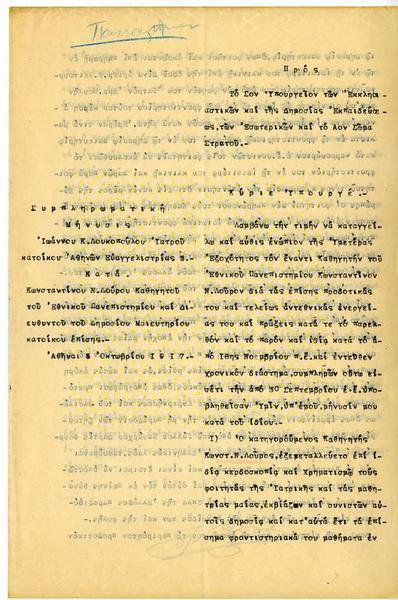 Πρός
Το Σον Ὑπουργεῖον τῶν Ἐκκλησι
αστικῶν καί τῆς Δημοσίας Ἐκπαιδεύσε
ως, τῶν Ἐσωτερικῶν καί τό Αον Σῶμα
Στρατοῦ.-
Κύριε Ὑπουργέ.-
Συμπληρωματική
Μήνυσις
Ἰωάννου Κ. Λουκοπούλου Ἰατροῦ
κατοίκου Ἀθηνῶν Εὐαγγελιστρίας
Κατά
Κωνσταντίνου Ν. Λούρου Καθηγητοῦ
τοῦ Ἐθνικοῦ Πανεπιστημίου καί Δι
ευθυντοῦ τοῦ Δημοσίου Μαιευτηρίου
κατοίκου ἐπίσης.-
Ἀθῆναι 5 Ὀκτωβρίου 1917.-
Λαμβάνω τήν τιμήν νά καταγγεί
λω καί αὖθις ἐνώπιον τῆς Ὑμετέρας
Ἐξοχότητος τόν ἔναντι Καθηγητήν τοῦ
Ἐθνικοῦ Πανεπιστημίου Κωνσταντῖνον
Ν. Λοῦρον διά τάς ἐπίσης προδοτικάς
του καί τελείως ἀντεθνικάς ἐνεργεί
ας του καί πράξεις κατά τε τό παρελ
θόν καί τό παρόν καί ἰδίᾳ κατά τό ἀ
πό 18ης Νοεμβρίου π.ἔ. καί ἐντεῦθεν
χρονικόν διάστημα, συμπληρῶν οὕτω εἰ
σέτι τήν ἀπό 30 Σεπτεμβρίου ἐ.ἔ. ὑπο
βληθεῖσαν Ὑμῖν, ὑπ' ἐμοῦ, μήνυσίν μου
κατά τοῦ ἰδίου.-
1) Ὁ κατηγορούμενος Καθηγητής
Κωνστ. Ν. Λοῦρος, ἐξεμεταλλεύετο ἐπί ἰ
δίᾳ κερδοσκοπίᾳ καί χρηματισμῷ τούς
φοιτητάς τῆς Ἰατρικῆς καί τάς μαθη
τρίας μαίας, ἐκβιάζων καί συνιστῶν αὐ
τοῖς δημοσίᾳ καί κατ' αὐτά ἔτι τά ἐπί
σημα φροντιστηριακά του μαθήματα ἐν